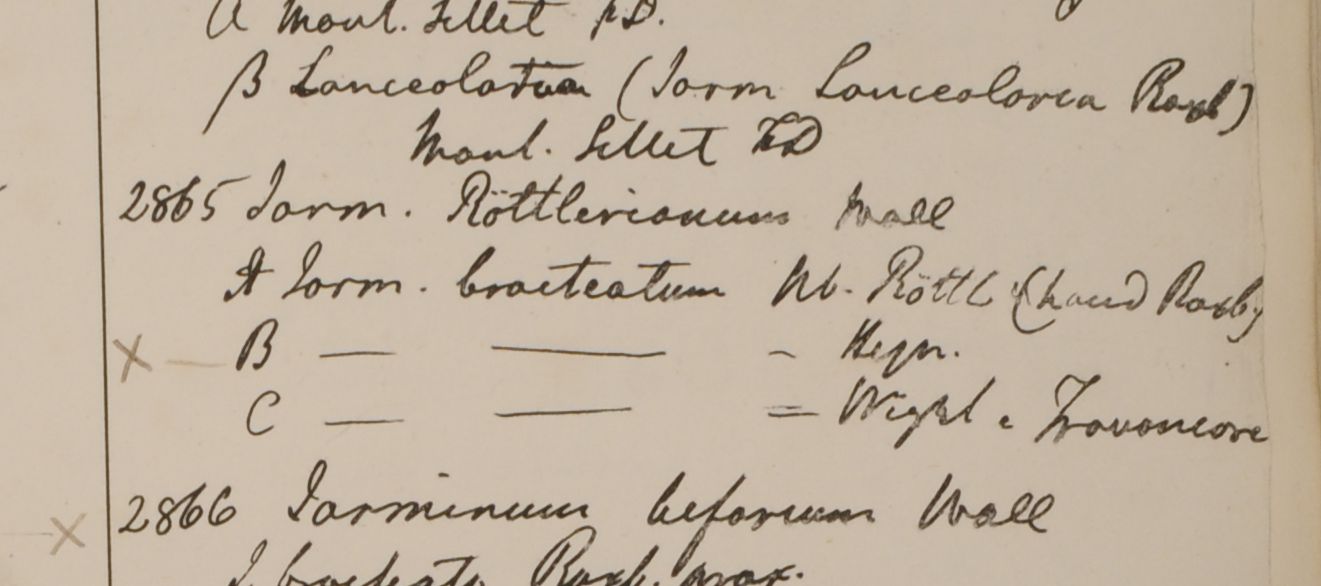 A Mont. Sillet FD.
β Lanceolaria (Jasm Lanceolaria Roxb)
Mont. Sillet FD
2865 Jasm. Röttlerianum Wall
A Jasm. bracteatum Hb. Röttl (haud Roxb)
X — B — — - Heyn.
C — — = Wight e Travancore
X 2866 Jasminum bifarium Wall
J. bracteata Roxb. prox.